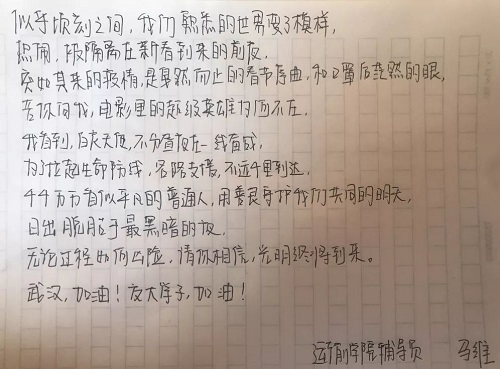 似乎顷刻之间，我们熟悉的世界变了模样，
热闹，被隔离在新春到来的前夜，
突如其来的疫情，是戛然而止的春节序曲，和口罩后茫然的眼，
若你问我，电影里的超级英雄为何不在，
我看到，白衣天使，不分昼夜在一线奋战，
为了拉起生命防线，各路支援，不远千里到达，
千千万万看似平凡的普通人，用善良守护我们共同的明天，
日出脱胎于最黑暗的夜，
无论过程如何凶险，请你相信，光明终将到来。
武汉，加油！交大学子，加油！
运输学院辅导员 马维